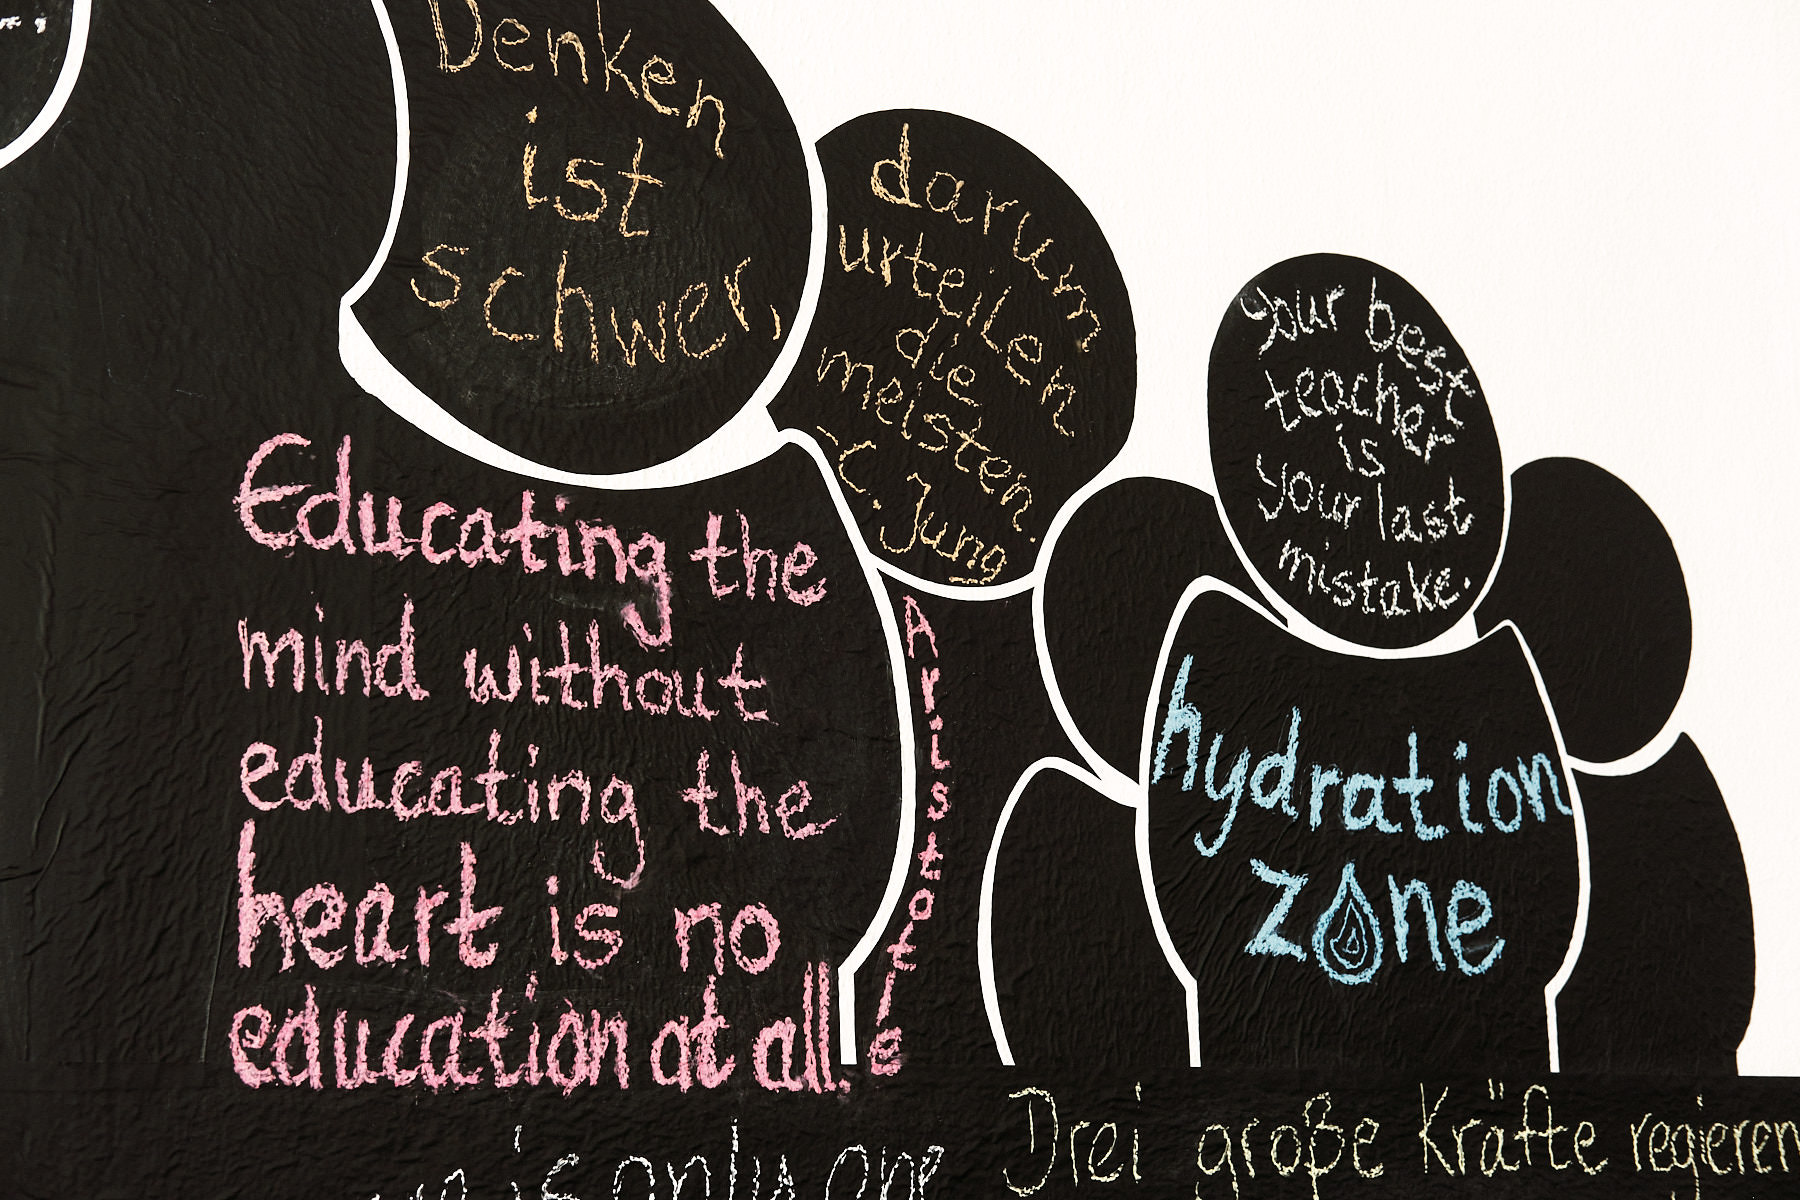 Denken
ist
schwer,
darum
urteilen
die
meisten.
-C. Jung
Your best
teacher
is
your last
mistake.
Educating the
mind without
educating the
heart is no
education at all.
Aristotle
hydration
zone
is only one
Drei große Kräfte regieren